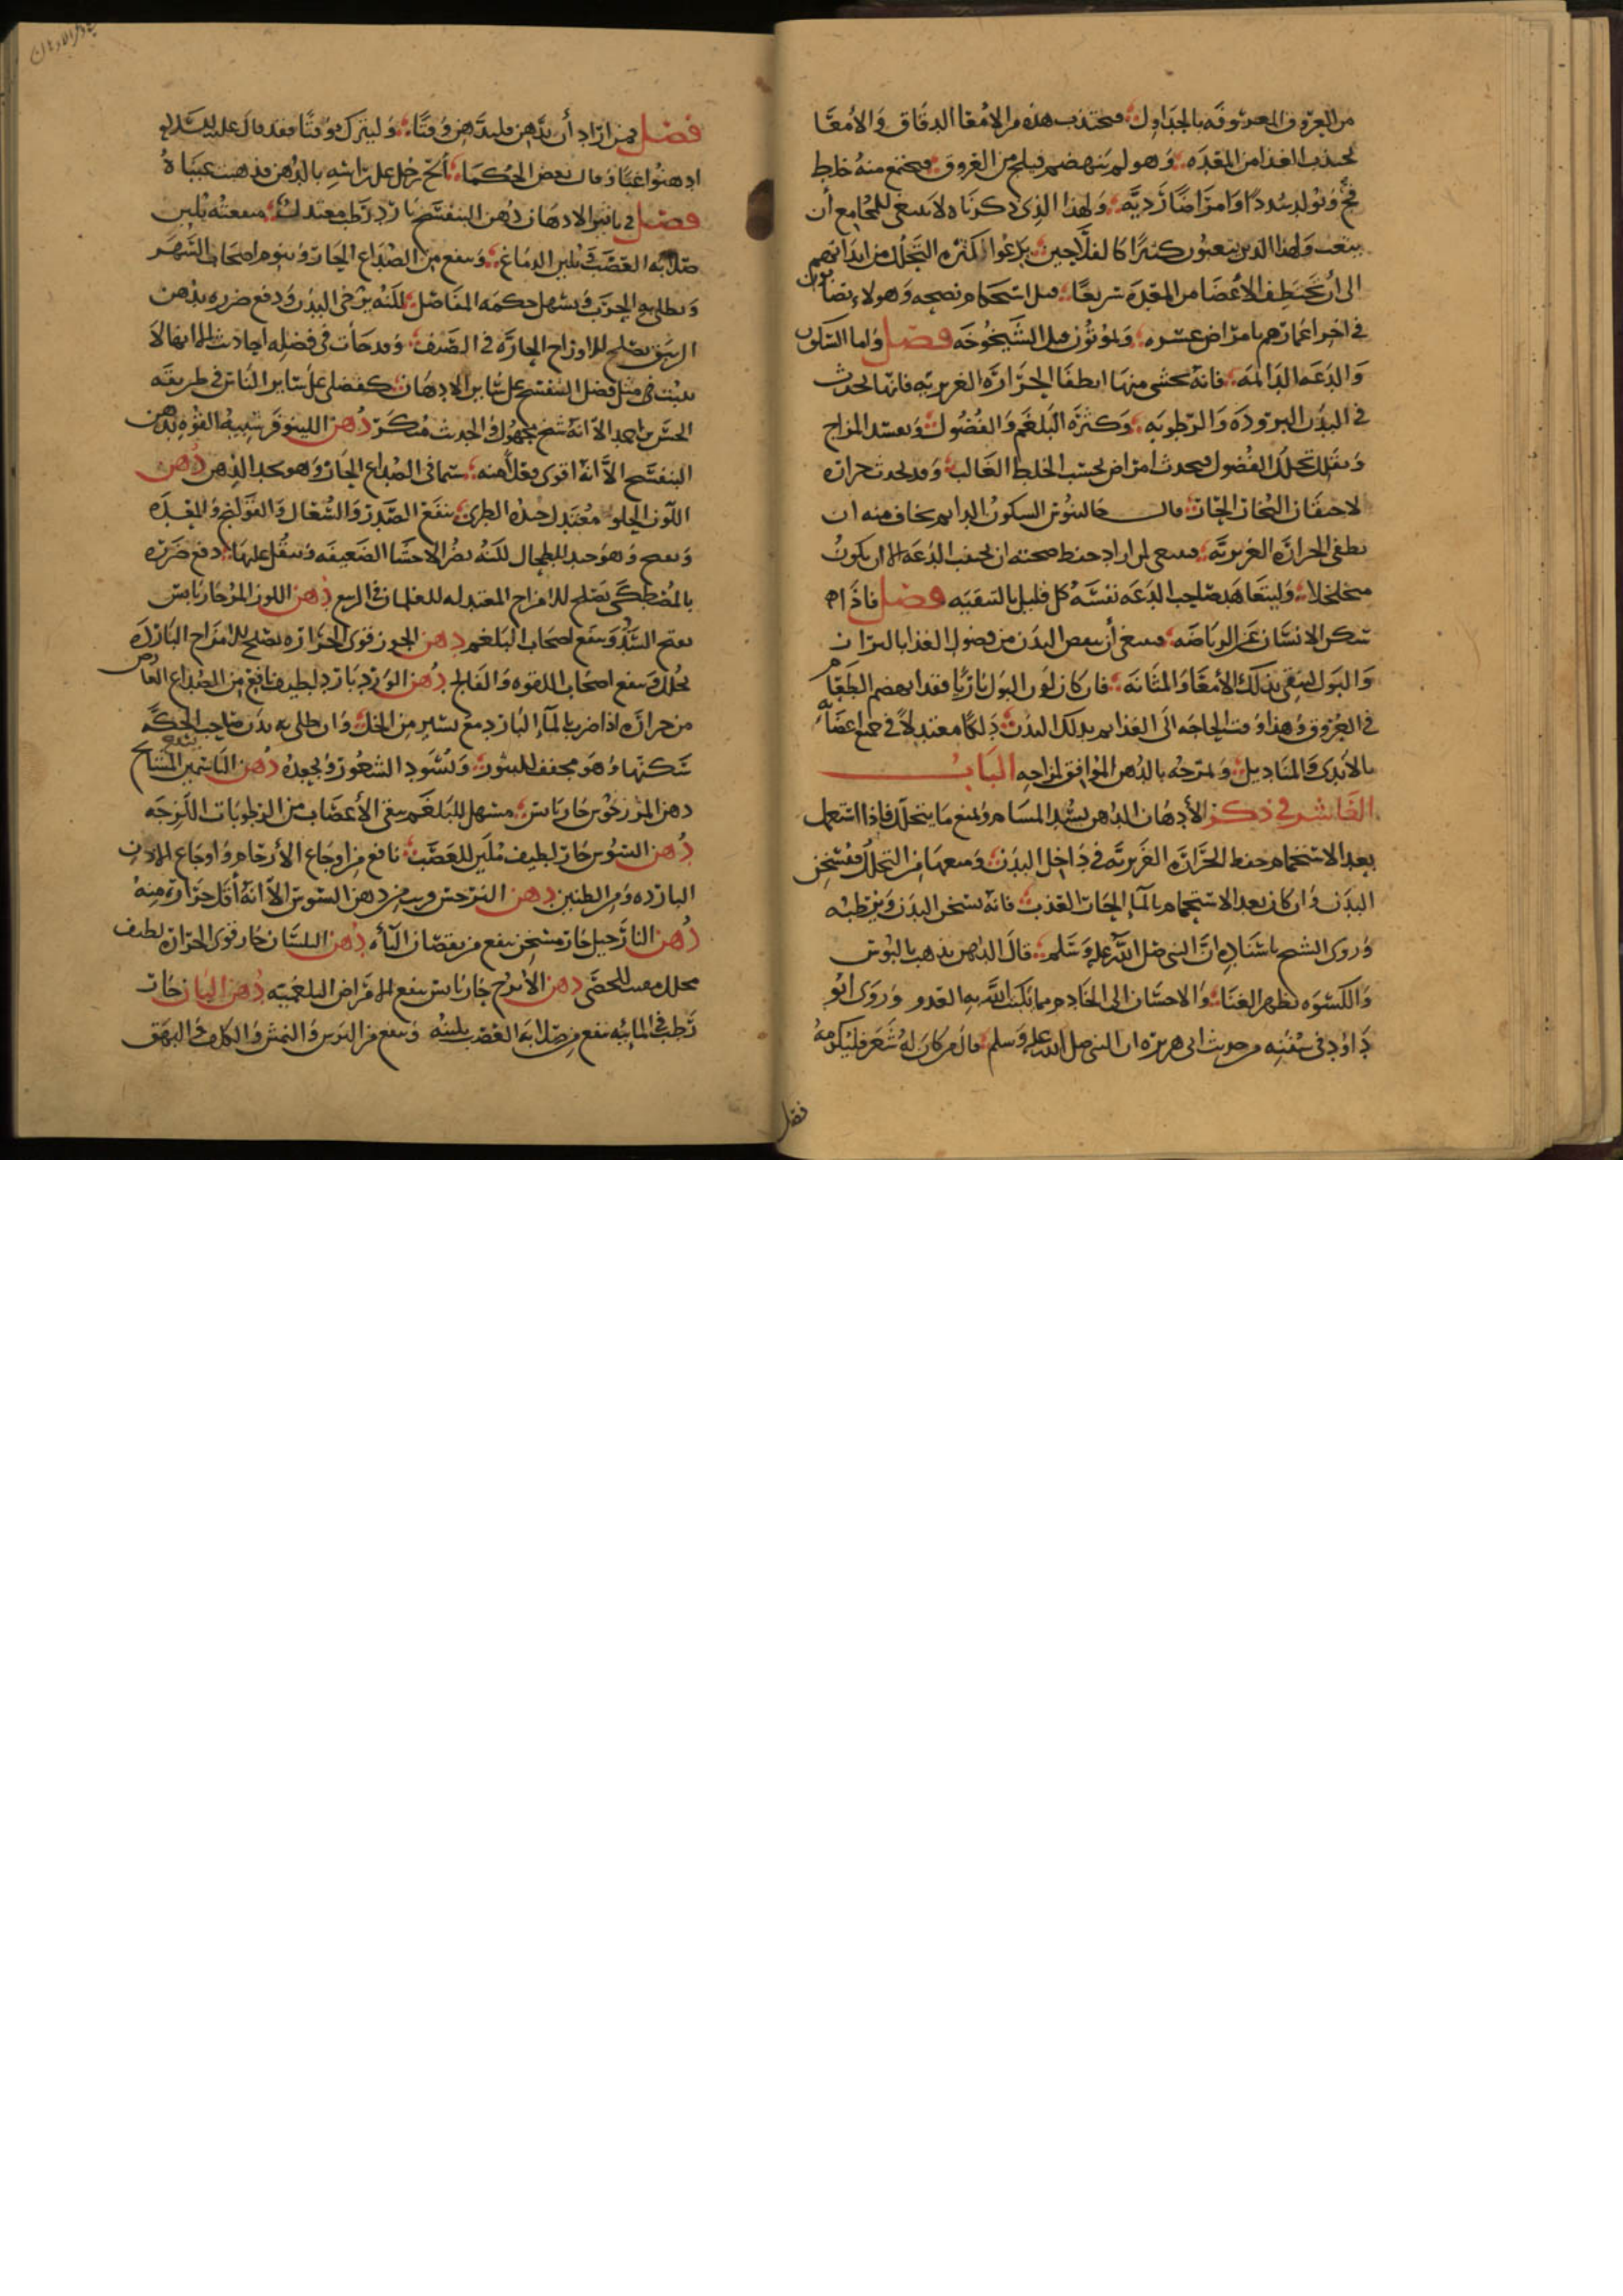 من العروق المعروفة بالجداول فتجتذب هذه من الامعا الدقاق والأمعا
تجتذب الغذا من المعدة وهو لم ينهضم فيلج من العروق فيجتمع منه خلط
فج وتولد سددا وامراضا رديه ولهذا الذي ذكرناه لا ينبغي للمجامع أن
يتعب ولهذا الذين يتعبون كثيرا كالفلاحين لكثرة التحلل من ابدانهم
الى أن تختطف الأعضا من المعدة سريعا قبل استحكام نضجه وهولاء يصابون
في اخر اعمارهم بامراض عسره ويموتون قبل الشيخوخه فصل واما السكون
والدعه الدايمه فانه يخشى منها انطفا الحرارة الغريزيه فانها تحدث
في البدن البروده والرطوبه وكثرة البلغم والفضول ويفسد المزاج
ويقل تحلل الفضول فيحدث امراض بحسب الخلط الغالب وقد يحدث حرارة
لاحتقان البخار الحار قال جالينوس السكون الدايم يخاف منه ان
يطفى الحرارة الغريزية فينبغي لمن اراد حفظ صحته ان يجتنب الدعه الا ان يكون
متخلخلا وليتعاهد صاحب الدعه نفسه كل قليل بالتنقيه فصل فاذا لم
تمكن الانسان الرياضه فينبغي أن ينفض البدن من فضول الغذا بالبراز
والبول لينقى بذلك الأمعا والمثانه فان كان لون البول ناريا فقد انهضم الطعام
في العروق وهذا وقت الحاجه الى الغذا ثم يدلك البدن دلكا معتدلا في جميع اعضائه
بالأيدي والمناديل ويمرخه بالدهن الموافق لمزاجه الباب
العاشر في ذكر الأدهان الدهن يسد المسام ويمنع ما يتحلل فاذا استعمل
بعد الاستحمام حفظ الحرارة الغريزيه في داخل البدن ومنعها من التحلل فتسخن
البدن وان كان بعد الاستحمام بالمآ الحار العذب فانه يسخن البدن ويرطبه
وروى الشيخ باسناده ان النبي صلى الله عليه وسلم قال الدهن يذهب بالبوس
والكسوه تظهر الغنا والاحسان الى الخادم مما يكبت الله به العدو وروى ابو
داود في سننه من حديث ابى هريرة ان النبي صلى الله عليه وسلم قال من كان له شعر فليكرمه
فصل
فصل فمن اراد أن يدهن فليدهن وقتا وليترك وقتا فقد قال عليه السلام
ادهنوا غبا وقال بعض الحكما ألح رجل على راسه بالدهن فذهبت عيناه
فصل في تاثير الادهان دهن البنفسج بارد رطب معتدل منفعته يلين
صلابه العصب ويلين الدماغ وينفع من الصداع الحار وينوم اصحاب السهر
ويطلى به الجرب ويسهل حركة المفاصل لكنه يرخى البدن ودفع ضرره بدهن
الزنبق يصلح للامزاج الحارة في الصيف وقد جآت في فضله احاديث الا انها لا
تثبت في مثل فضل البنفسج على ساير الادهان كفضلي على ساير الناس في طريقه
الحسن بن احمد الا انه شيخ مجهول والحديث منكر دهن اللينوفر شبيه القوه بدهن
البنفسج الا انه اقوى فعلا منه سيما في الصداع الحار وهو يحد الذهن دهن
اللوز الحلو معتدل جيده الطري ينفع الصدر والسعال والقولنج والمعدة
وهو جيد للطحال لكنه يضر الاحشا الضعيفه ويثقل عليها دفع ضرره
بالمصطكى يصلح للامزاج المعتدله للغلمان في الربيع دهن اللوز المر حار يابس
يفتح السدد وينفع اصحاب البلغم دهن الجوز قوى الحراره يصلح للامزاج البارده
يحلل وينفع اصحاب اللقوه والفالج دهن الورد بارد لطيف نافع من الصداع العارض
من حرارة اذا ضرب بالمآ البارد مع يسير من الخل وان طلى به بدن صاحب الحكه
سكنها وهو مجفف للبثور ويسود الشعور ويجعده دهن الياسمين ينفع المشايخ
دهن المرزنجوش حار يابس مسهل للبلغم ينقى الأعصاب من الرطوبات اللزجه
دهن السوسن حار لطيف ملين للعصب نافع من اوجاع الأرحام واوجاع الاذن
البارده ومن الطنين دهن النرجس قريب من دهن السوسن الا انه أقل حرارة منه
دهن النارجيل حار مسخن ينفع من نقصان البآه دهن البلسان حار قوى الحرارة لطيف
محلل مفتت للحصى دهن الأترج حار يابس ينفع الامراض البلغميه دهن البان حار
رطب في الثانيه ينفع من صلابة العصب يلينه وينفع من البرص والنمش والكلف والبهق